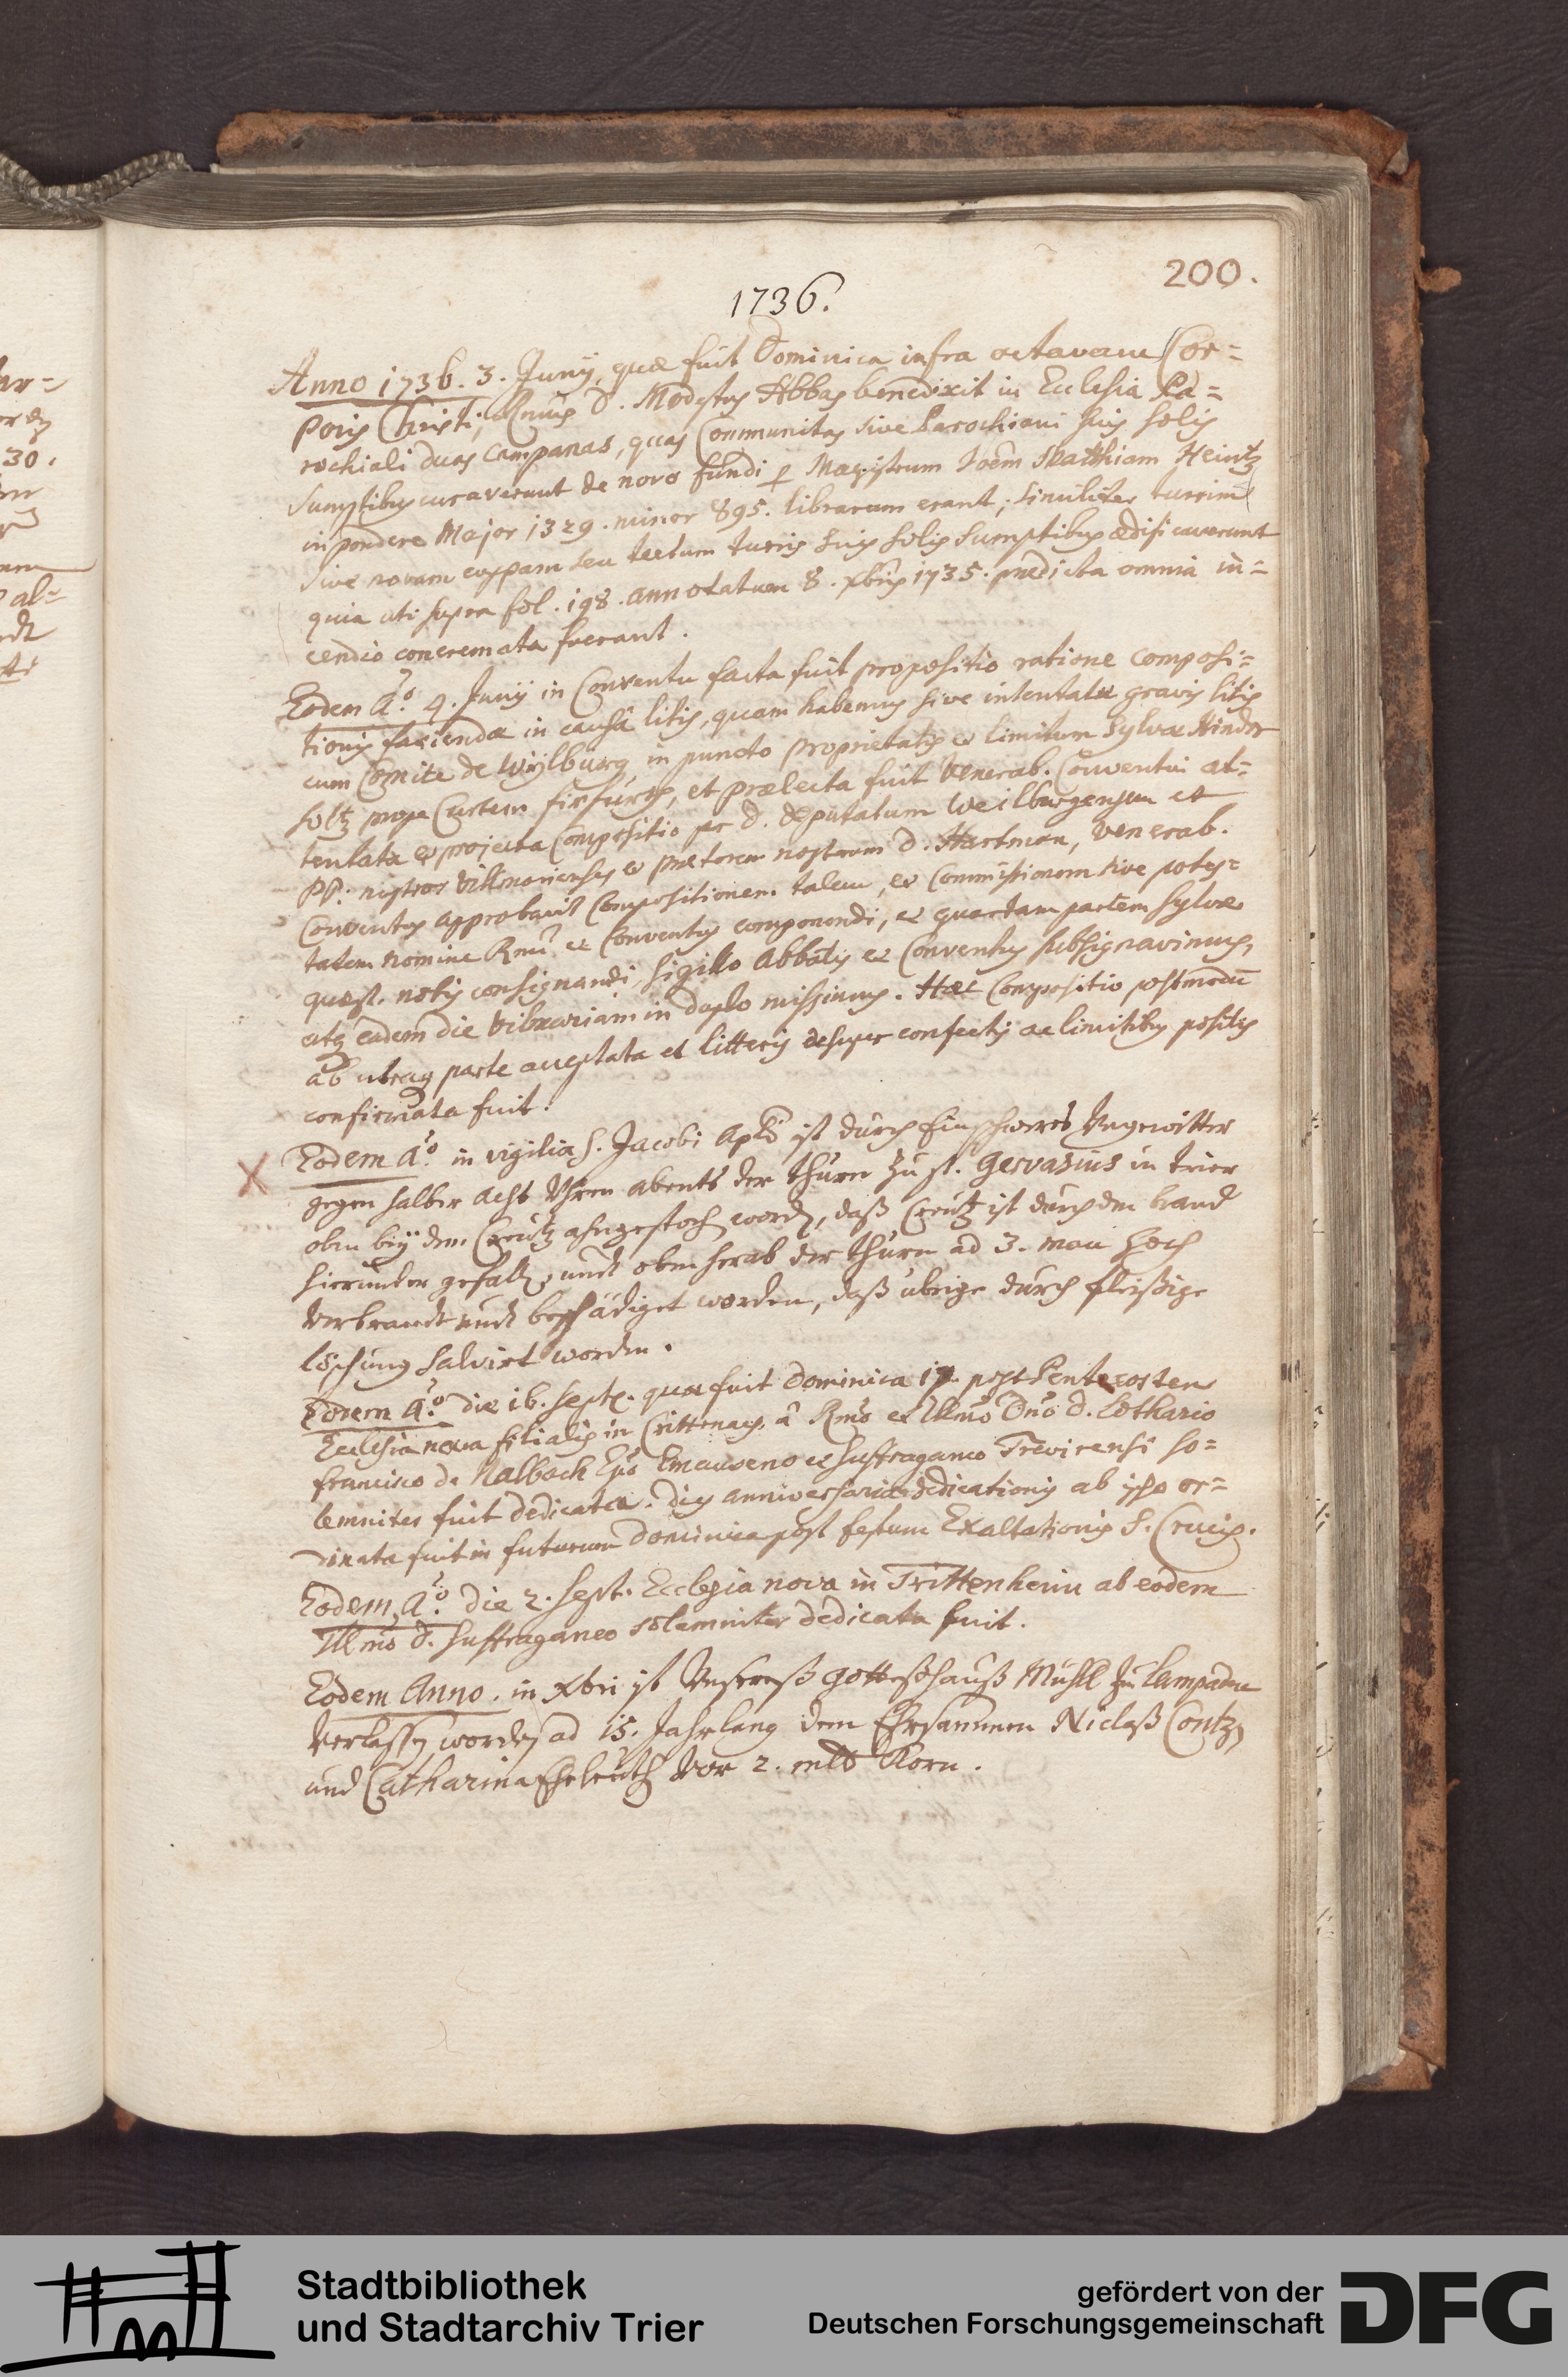 200.
1736.
Anno 1736. 3. Junij, quæ fuit Dominica infra octavam Cor=
poris Christi, Rmus D. Modestus Abbas benedixit in Ecclesia Pa=
rochiali duas Campanas, quas Communitas sive Parochiani suis solis
sumptibus curaverunt de novo fundi p Magistrum Joem Matthiam Heintz
in pondere Major 1329. minor 895. librarum erant; similiter turrim
sive novam cuppam seu tectum turris suis solis sumptibus ædificaverunt
quia uti supra fol. 198. annotatum 8. xbris 1735. prædicta omnia in=
cendio concremata fuerant.
Eodem Ao. 4. Junij in Conventu facta fuit propositio ratione composi=
tionis faciendæ in causâ litis, quam habemus sive intentatæ gravis litis
cum Comite de Wijlburg in puncto proprietatis et limitum Sylvæ Hinder
holtz prope Curtem firfurth, et prælecta fuit Venerab. Conventui at=
tentata et projecta Compositio per D. deputatum Weilburgensem et
PP. nostros Villmarienses et prætorem nostrum D. Hartman, Venerab.
Conventus approbavit Compositionem talem, et Commissionem sive potes=
tatem nomine Rmi et Conventus componendi, et quartam partem sylvæ
quæst. nobis consignandi, sigillo Abbatis et Conventus subsignavimus,
atq eadem die Vilmariam in duplo missimus. Hæc Compositio postmodū
ab utraq parte acceptata et litteris desuper confectis ac limitibus positis
confirmata fuit.
X Eodem Ao. in vigilia S. Jacobi Apli ist durch Ein schweres Ungewitter
gegen halber acht Uhren abents der thurn zu st. Gervasius in trier
oben bey dem Creutz ahngestoch word, daß Creutz ist durch den brand
hierunder gefall, undt oben herab der thurn ad 3. man hoch
Verbrandt undt beschädiget worden, daß übrige durch fleißige
löschung salvirt worden.
Eodem Ao. die 16. Septr. quæ fuit Dominica 17. post Pentecosten
Ecclesia nova filialis in Crittenach, â Rmo et Illmo Dno D. Lothario
francisco de Nalbach Epo Emauseno et Suffraganeo Trevirensi so=
lemniter fuit dedicata. dies anniversaria dedicationis ab ipso or=
dinata fuit in futurum Dominica post festum Exaltationis S. Crucis.
Eodem Ao. die 2. Sept. Ecclesia nova in Trittenheim ab eodem
Illmo D. Suffraganeo solemniter dedicata fuit.
Eodem Anno. in Xbri ist Unsereß gotteßhauß Mühll zu Lampaden
Verlassen worden ad 15. Jahr lang dem Ehrsammen Niclaß Contz
und Catharina Eheleuth vor 2. mltr Korn.
Stadtbibliothek
und Stadtarchiv Trier
gefördert von der
Deutschen Forschungsgemeinschaft
DFG